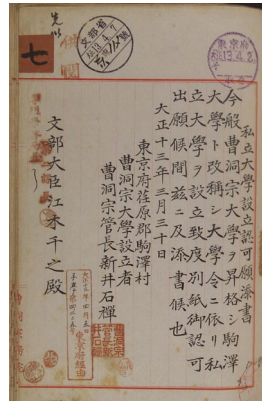 私立大學設立認可願添書
今般曹洞宗大學ヲ昇格シ駒澤
大學ト改稱シ大學令ニ依リ私
立大學ヲ設立致度別紙御認可
出願候間茲ニ及添書候也
大正十三年三月三十日
東京府荏原郡駒澤村
曹洞宗大學設立者
曹洞宗管長新井石禪
文部大臣江木千之殿
七
文部省
東京府
13.4.2
東京府經由